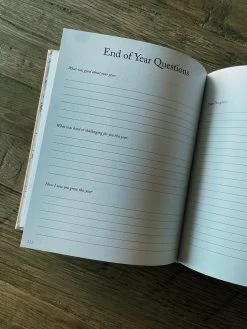 End of Year Questions
What was good about your year?
What was hard or challenging for you this year?
How I saw you grow this year: